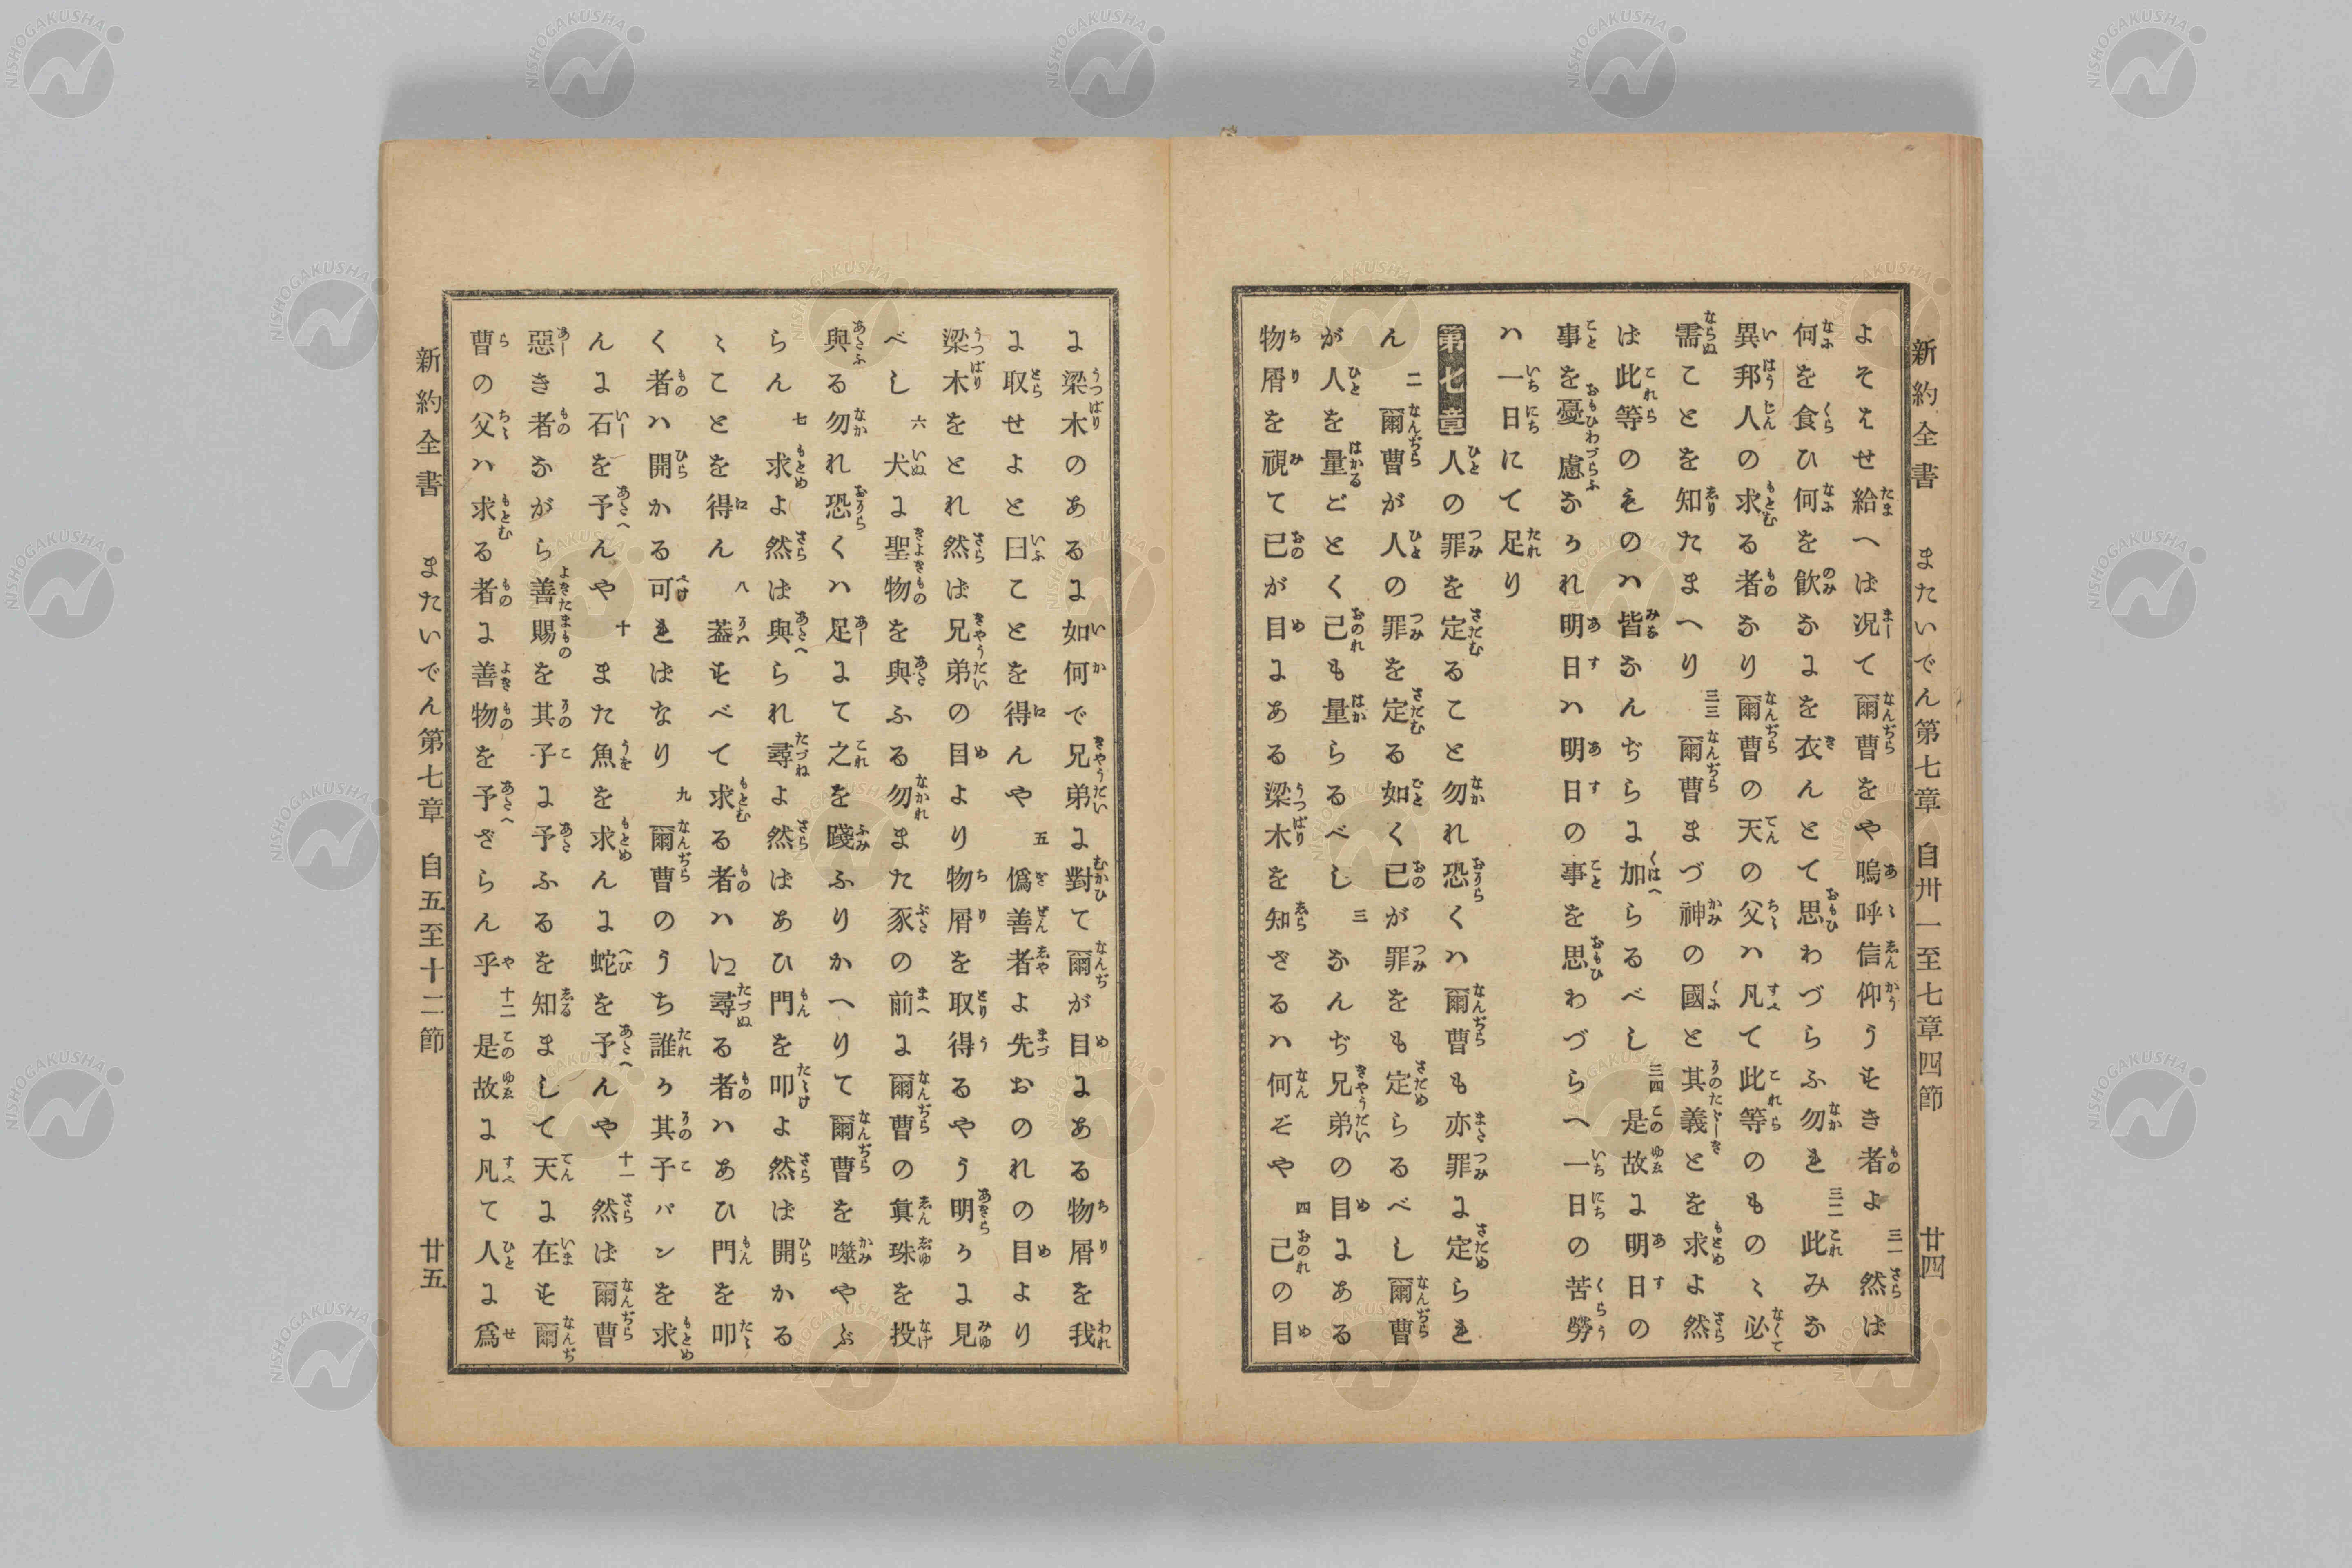 新約全書 またいでん第七章 自卅一至七章四節 廿四
よそえせ給へば况て爾曹をや嗚呼信仰うすき者よ 三一 然ば
何を食ひ何を飮なにを衣んとて思わづらふ勿れ 三二 此みな
異邦人の求る者なり爾曹の天の父ハ凡て此等のものゝ必
需ことを知たまへり 三三 爾曹まづ神の國と其義とを求よ然
ば此等のものハ皆なんぢらに加らるべし 三四 是故に明日の
事を憂慮なかれ明日ハ明日の事を思わづらへ一日の苦勞
ハ一日にて足り
第七章 人の罪を定ること勿れ恐くハ爾曹も亦罪に定られ
ん 二 爾曹が人の罪を定る如く己が罪をも定らるべし爾曹
が人を量どとく己も量らるべし 三 なんぢ兄弟の目にある
物屑を視て己が目にある梁木を知ざるハ何ぞや 四 己の目
に梁木のあるに如何で兄弟に對て爾が目にある物屑を我
に取せよと曰ことを得んや 五 僞善者よ先おのれの目より
梁木をとれ然ば兄弟の目より物屑を取得るやう明かに見
べし 六 犬に聖物を與ふる勿れまた豕の前に爾曹の眞珠を投
與る勿れ恐くハ足にて之を踐ふりかへりて爾曹を噬やぶ
らん 七 求よ然ば與られ尋よ然ばあひ門を叩よ然ば開かる
ゝことを得ん 八 葢すべて求る者ハに尋る者ハあひ門を叩
く者ハ開かる可ればなり 九 爾曹のうち誰か其子パンを求
んに石を予んや 十 また魚を求んに蛇を予んや 十一 然ば爾曹
惡き者ながら善賜を其子に予ふるを知まして天に在す爾
曹の父ハ求る者に善物を予ざらん乎 十二 是故に凡て人に爲
新約全書 またいでん第七章 自五至十二節 廿五